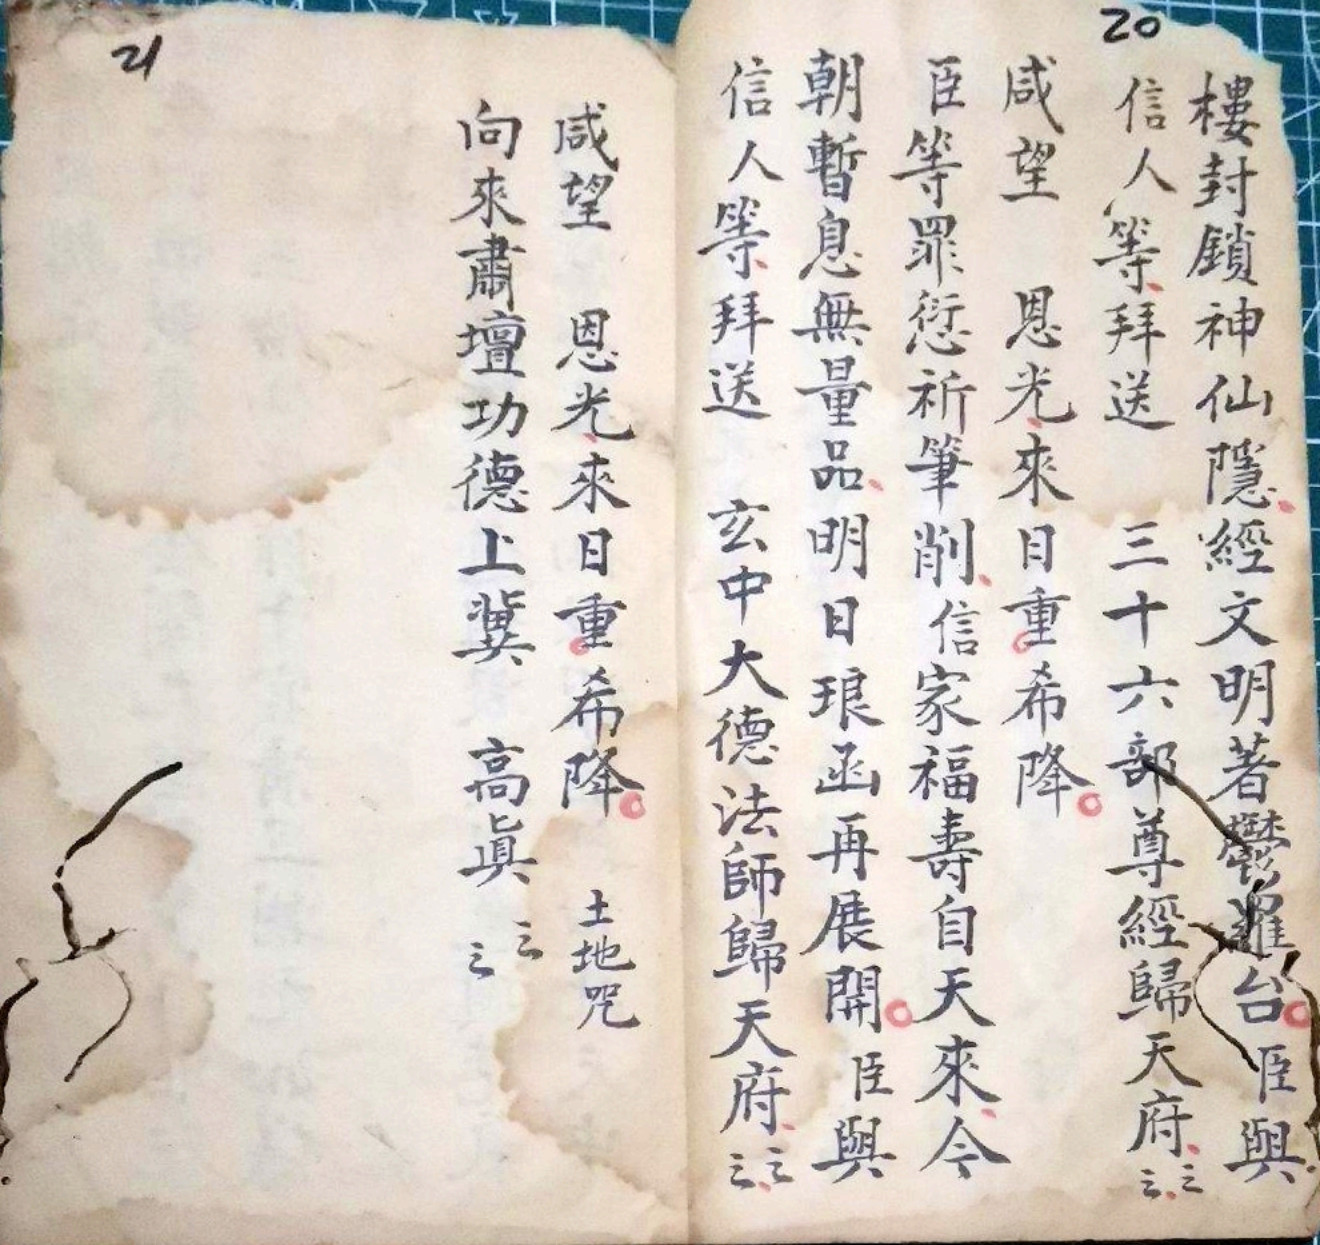 20
樓封鎖神仙隱經文明著鬱羅台臣與
信人等拜送 三十六部尊經歸天府三三
咸望 恩光來日重希降
臣等罪愆祈筆削信家福壽自天來今
朝暫息無量品明日琅函再展開臣與
信人等拜送 玄中大德法師歸天府三三
21
咸望 恩光來日重希降 土地咒
向來肅壇功德上冀 高眞三三